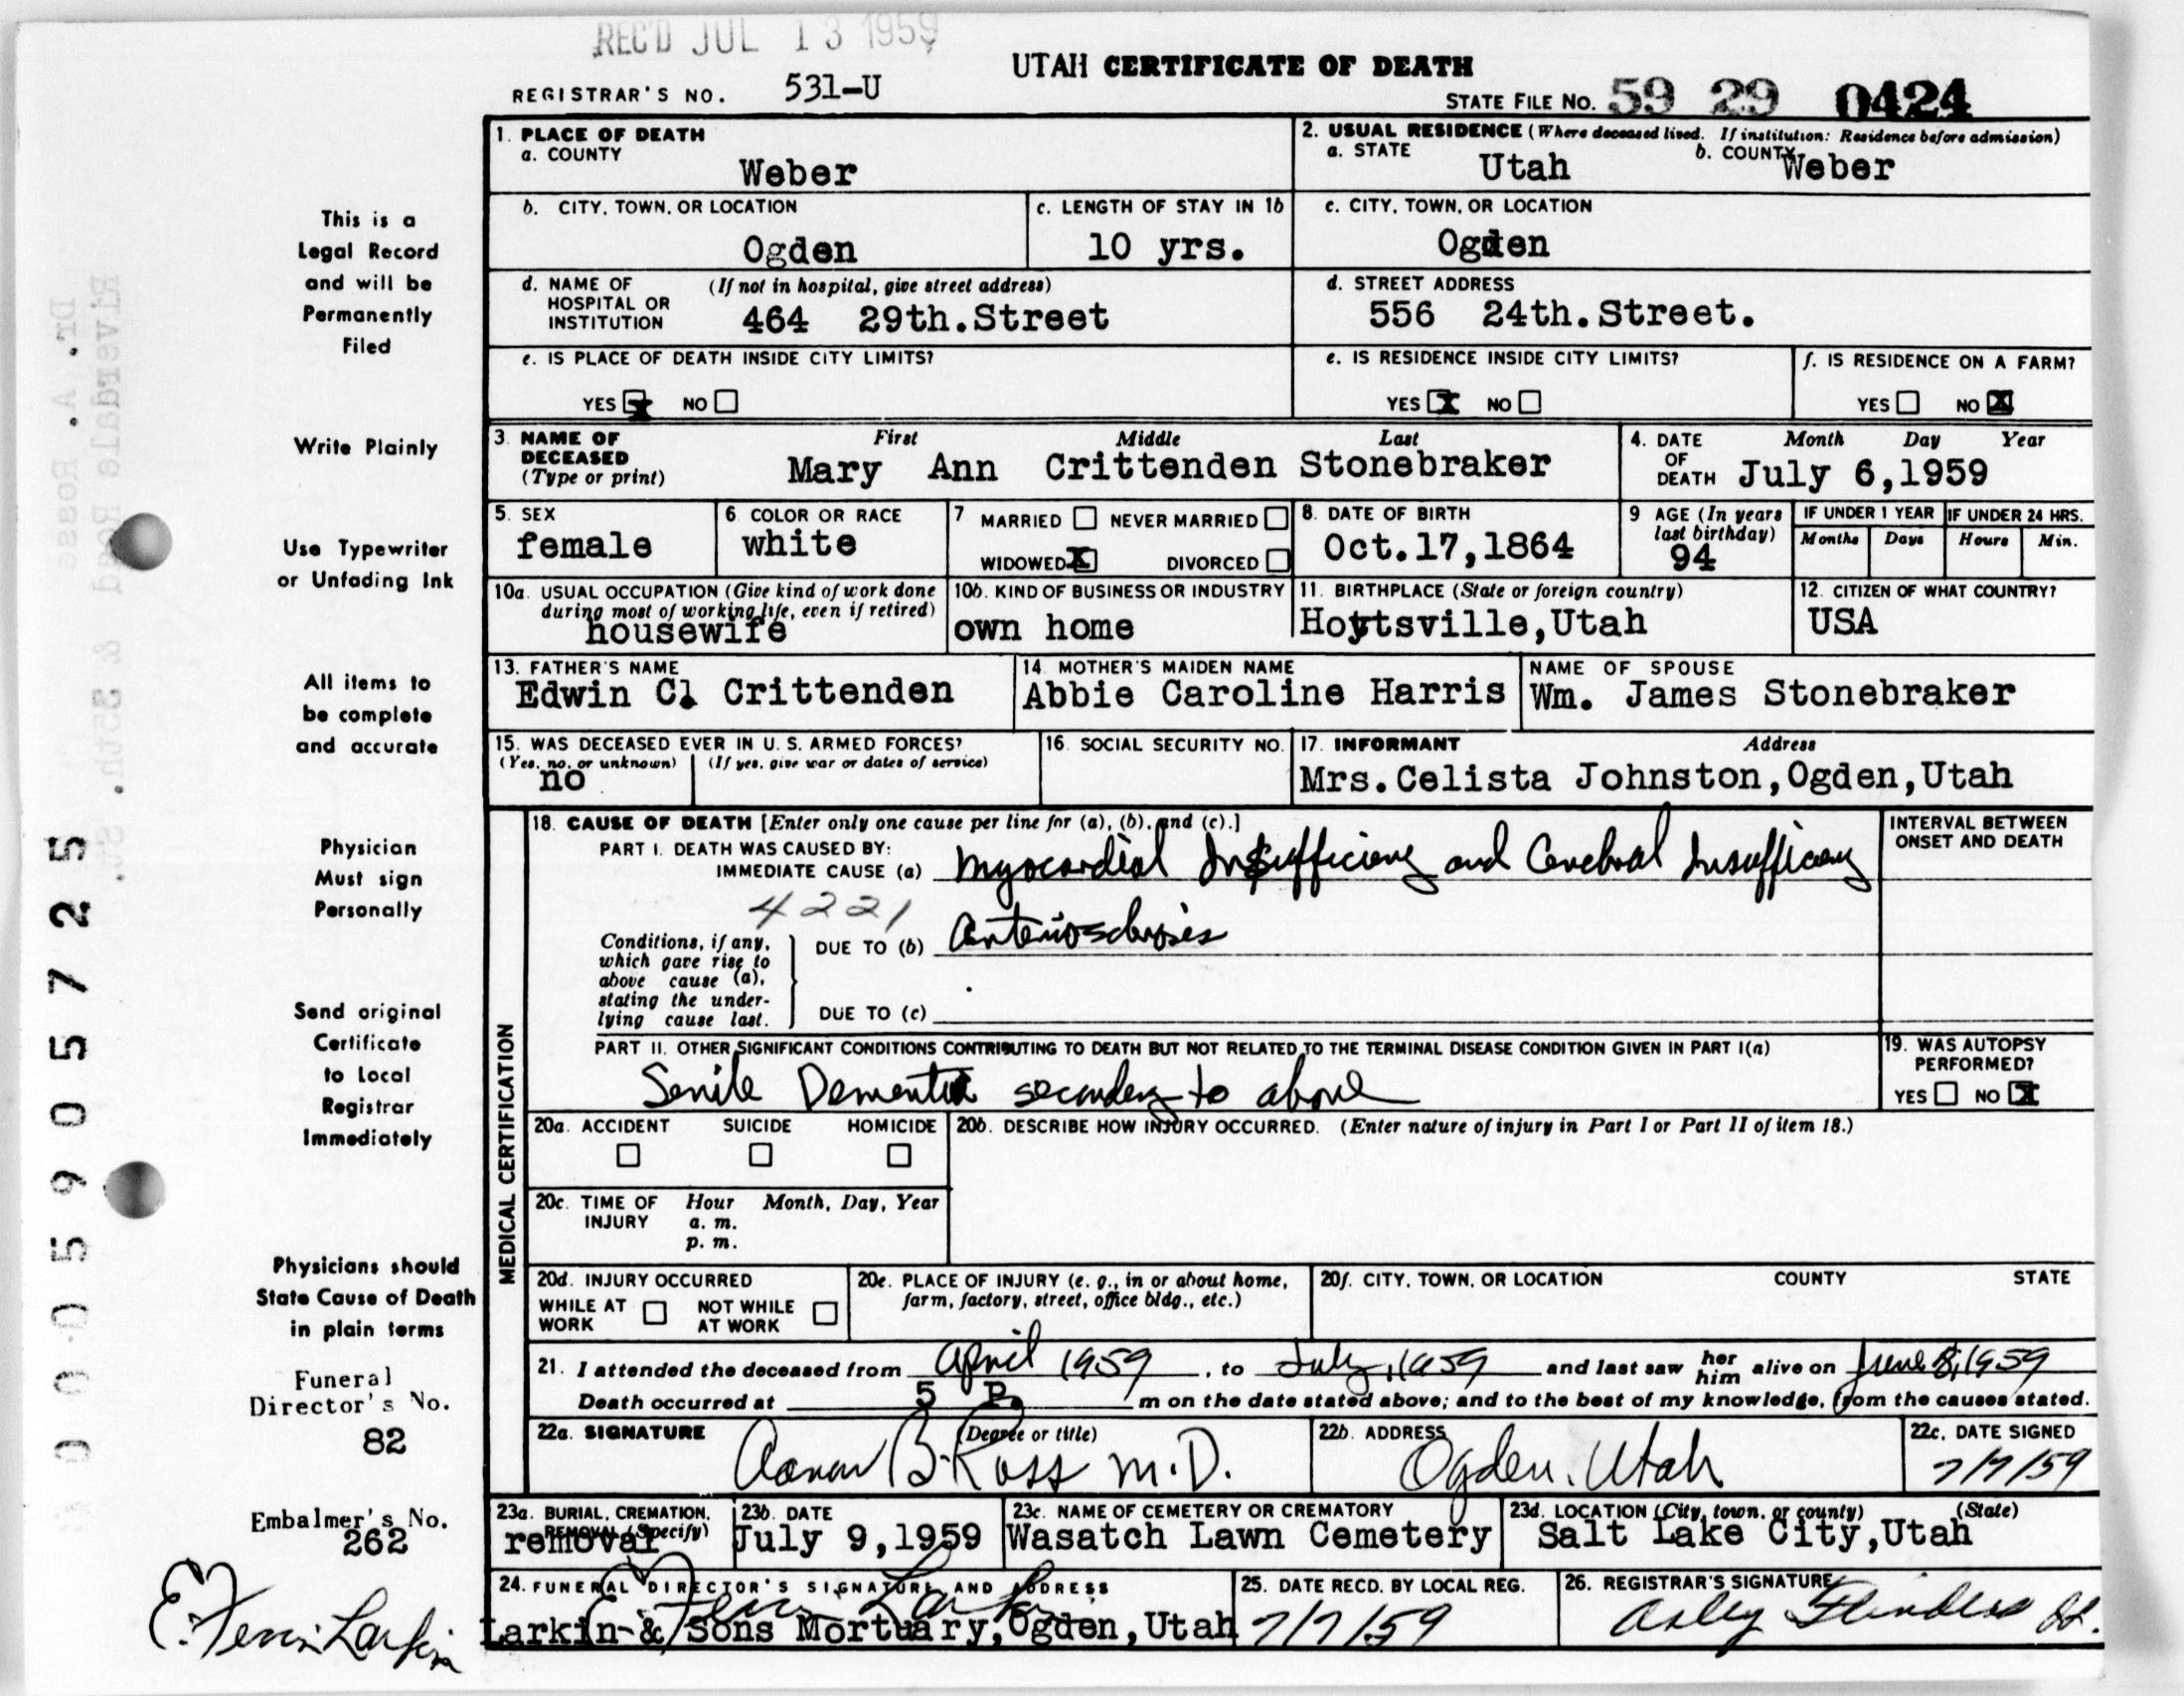 REC'D JUL 13 1959
UTAH CERTIFICATE OF DEATH
REGISTRAR'S NO. 531-U
STATE FILE NO. 59 29 0424
1. PLACE OF DEATH
a. COUNTY
Weber
2. USUAL RESIDENCE (Where deceased lived. If institution: Residence before admission)
a. STATE Utah b. COUNTY Weber
b. CITY, TOWN, OR LOCATION
Ogden
c. LENGTH OF STAY IN 1b
10 yrs.
c. CITY, TOWN, OR LOCATION
Ogden
d. NAME OF HOSPITAL OR INSTITUTION (If not in hospital, give street address)
464 29th.Street
d. STREET ADDRESS
556 24th.Street.
e. IS PLACE OF DEATH INSIDE CITY LIMITS?
YES X NO
e. IS RESIDENCE INSIDE CITY LIMITS?
YES X NO
f. IS RESIDENCE ON A FARM?
YES NO X
3. NAME OF DECEASED (Type or print)
First Middle Last
Mary Ann Crittenden Stonebraker
4. DATE OF DEATH
Month Day Year
July 6,1959
5. SEX
female
6. COLOR OR RACE
white
7 MARRIED NEVER MARRIED
WIDOWED X DIVORCED
8. DATE OF BIRTH
Oct.17,1864
9 AGE (In years last birthday)
94
IF UNDER 1 YEAR
Months Days
IF UNDER 24 HRS.
Hours Min.
10a. USUAL OCCUPATION (Give kind of work done during most of working life, even if retired)
housewife
10b. KIND OF BUSINESS OR INDUSTRY
own home
11. BIRTHPLACE (State or foreign country)
Hoytsville,Utah
12. CITIZEN OF WHAT COUNTRY?
USA
13. FATHER'S NAME
Edwin C. Crittenden
14. MOTHER'S MAIDEN NAME
Abbie Caroline Harris
NAME OF SPOUSE
Wm. James Stonebraker
15. WAS DECEASED EVER IN U. S. ARMED FORCES?
(Yes, no, or unknown) (If yes, give war or dates of service)
no
16. SOCIAL SECURITY NO.
17. INFORMANT Address
Mrs.Celista Johnston,Ogden,Utah
MEDICAL CERTIFICATION
18. CAUSE OF DEATH [Enter only one cause per line for (a), (b), and (c).]
PART I. DEATH WAS CAUSED BY:
IMMEDIATE CAUSE (a) Myocardial Insufficiency and Cerebral Insufficiency
4221
Conditions, if any, which gave rise to above cause (a), stating the underlying cause last.
DUE TO (b) Arteriosclerosis
DUE TO (c)
INTERVAL BETWEEN ONSET AND DEATH
PART II. OTHER SIGNIFICANT CONDITIONS CONTRIBUTING TO DEATH BUT NOT RELATED TO THE TERMINAL DISEASE CONDITION GIVEN IN PART I(a)
Senile Dementia secondary to above
19. WAS AUTOPSY PERFORMED?
YES NO X
20a. ACCIDENT SUICIDE HOMICIDE
20b. DESCRIBE HOW INJURY OCCURRED. (Enter nature of injury in Part I or Part II of item 18.)
20c. TIME OF INJURY Hour Month, Day, Year
a. m.
p. m.
20d. INJURY OCCURRED
WHILE AT WORK NOT WHILE AT WORK
20e. PLACE OF INJURY (e. g., in or about home, farm, factory, street, office bldg., etc.)
20f. CITY, TOWN, OR LOCATION COUNTY STATE
21. I attended the deceased from April 1959, to July, 1959 and last saw her him alive on June 8, 1959
Death occurred at 5 P. m on the date stated above; and to the best of my knowledge, from the causes stated.
22a. SIGNATURE (Degree or title)
Aaron B. Ross M.D.
22b. ADDRESS
Ogden, Utah
22c. DATE SIGNED
7/7/59
23a. BURIAL, CREMATION, REMOVAL (Specify)
removal
23b. DATE
July 9,1959
23c. NAME OF CEMETERY OR CREMATORY
Wasatch Lawn Cemetery
23d. LOCATION (City, town, or county) (State)
Salt Lake City,Utah
24. FUNERAL DIRECTOR'S SIGNATURE AND ADDRESS
Larkin & Sons Mortuary,Ogden,Utah
25. DATE RECD. BY LOCAL REG.
7/7/59
26. REGISTRAR'S SIGNATURE
This is a
Legal Record
and will be
Permanently
Filed
Write Plainly
Use Typewriter
or Unfading Ink
All items to
be complete
and accurate
Physician
Must sign
Personally
Send original
Certificate
to Local
Registrar
Immediately
Physicians should
State Cause of Death
in plain terms
Funeral
Director's No.
82
Embalmer's No.
262
E. Ferrin Larkin
0005905725